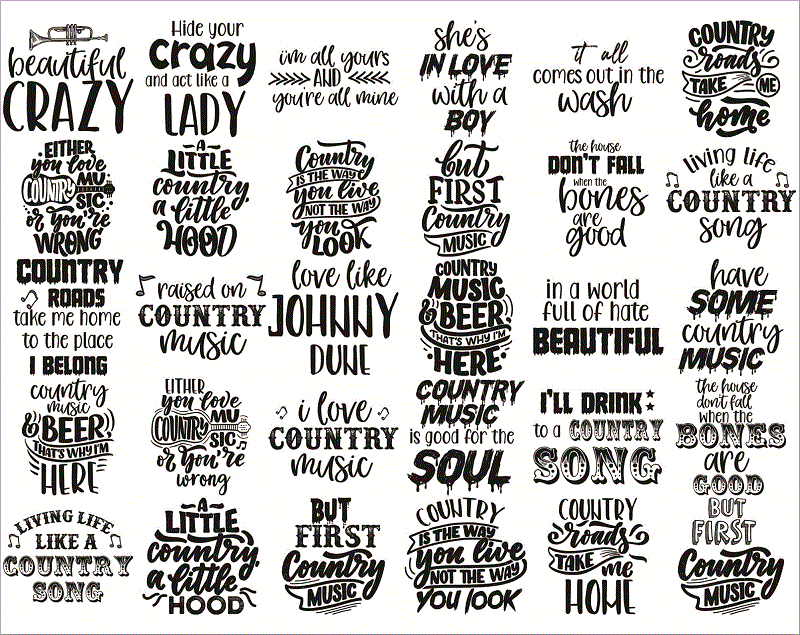 beautiful
CRAZY
Hide your
crazy
and act like a
LADY
i'm all yours
AND
you're all mine
she's
IN LOVE
with a
BOY
it all
comes out in the
wash
COUNTRY
roads
TAKE ME
home
EITHER
you love
COUNTRY MU
SIC
or you're
WRONG
A
LITTLE
country,
a little
HOOD
Country
IS THE WAY
you live
NOT THE WAY
you
LOOK
but
FIRST
Country
MUSIC
the house
DON'T FALL
when the
bones
are
good
living life
like a
COUNTRY
song
COUNTRY
ROADS
take me home
to the place
I BELONG
raised on
COUNTRY
music
love like
JOHNNY
DUNE
COUNTRY
MUSIC
& BEER,
THAT'S WHY I'M
HERE
in a world
full of hate
BEAUTIFUL
have
SOME
country
MUSIC
country
music
& BEER,
THAT'S WHY I'M
HERE
EITHER
you love
COUNTRY MU
SIC
or you're
wrong
i love
COUNTRY
music
COUNTRY
MUSIC
is good for the
SOUL
I'LL DRINK
to a COUNTRY
SONG
the house
don't fall
when the
BONES
are
GOOD
LIVING LIFE
LIKE A
COUNTRY
SONG
A
LITTLE
country,
a little
HOOD
BUT
FIRST
Country
MUSIC
COUNTRY
IS THE WAY
you live
NOT THE WAY
YOU LOOK
COUNTRY
roads
TAKE me
HOME
BUT
FIRST
Country
MUSIC